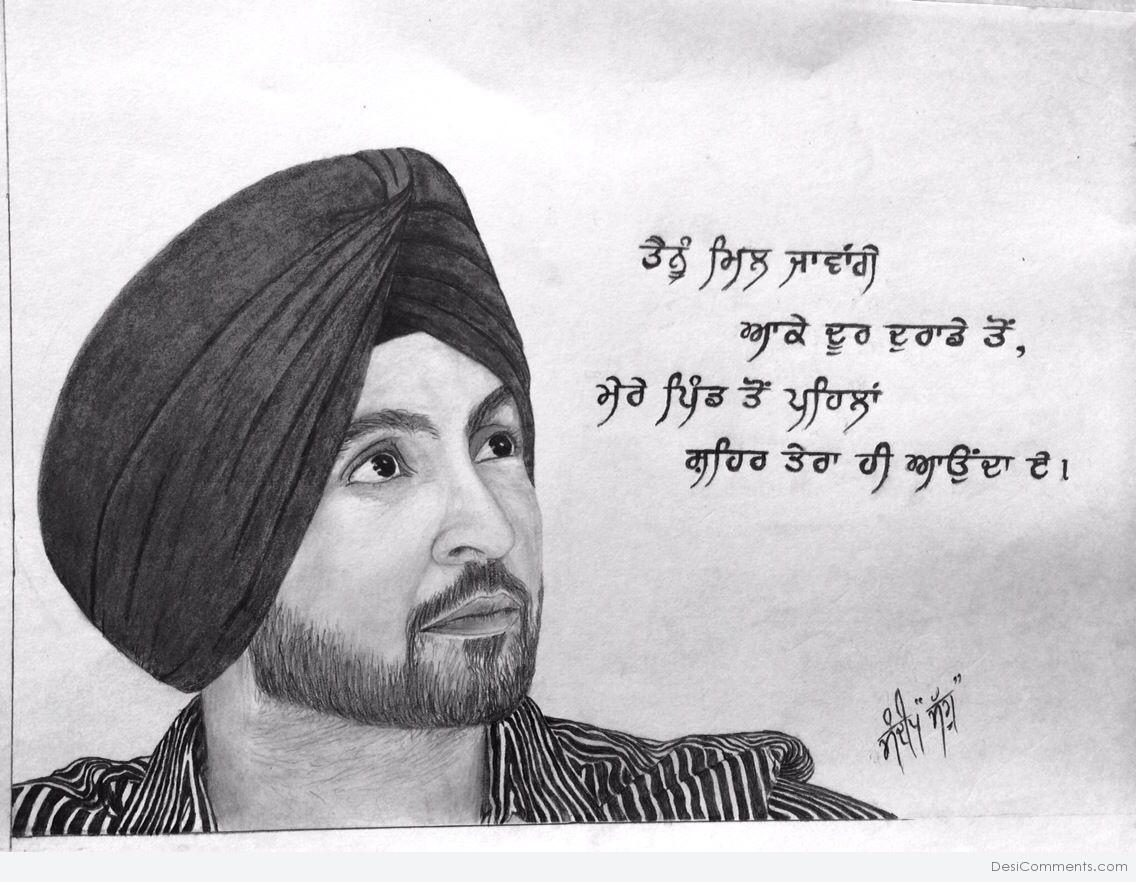 ਤੈਨੂੰ ਮਿਲ ਜਾਵਾਂਗੇ
ਆਕੇ ਦੂਰ ਦੁਰਾਡੇ ਤੋਂ,
ਮੇਰੇ ਪਿੰਡ ਤੋਂ ਪਹਿਲਾਂ
ਸ਼ਹਿਰ ਤੇਰਾ ਹੀ ਆਉਂਦਾ ਏ।
DesiComments.com